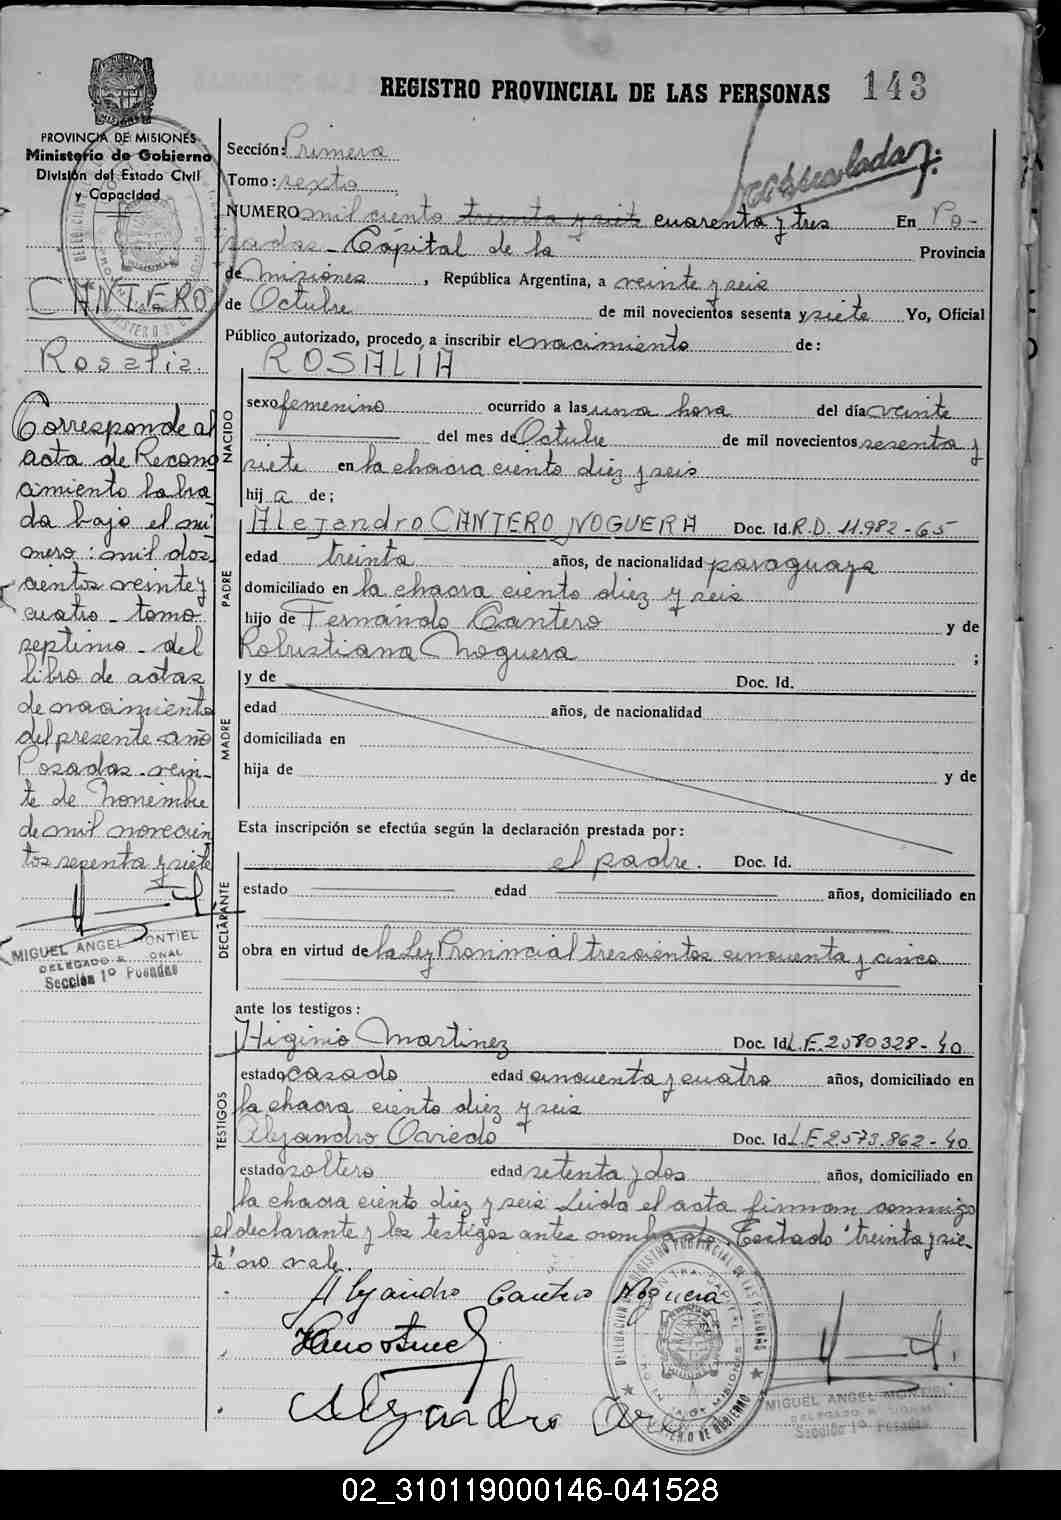 REGISTRO PROVINCIAL DE LAS PERSONAS 143
PROVINCIA DE MISIONES
Ministerio de Gobierno
División del Estado Civil
y Capacidad
CANTERO
Rosalia.
Corresponde al
acta de Recono
cimiento labra
da bajo el nú
mero: mil dos
cientos veinte y
cuatro - tomo
septimo - del
libro de actas
de nacimiento
del presente año
Posadas - vein-
te de Noviembre
de mil novecien
tos sesenta y siete
MIGUEL ANGEL MONTIEL
Sección 1º Posadas
Sección: Primera
Tomo: sexto
NUMERO mil ciento treinta y siete cuarenta y tres En Po-
sadas - Cápital de la Provincia
de Misiones, República Argentina, a veinte y seis
de Octubre de mil novecientos sesenta y siete Yo, Oficial
Público autorizado, procedo a inscribir el nacimiento de:
ROSALÍA
NACIDO
sexo femenino ocurrido a las una hora del día veinte
del mes de Octubre de mil novecientos sesenta y
siete en la chacra ciento diez y seis
hij a de;
PADRE
Alejandro CANTERO NOGUERA Doc. Id. R.D. 11.982-65
edad treinta años, de nacionalidad paraguaya
domiciliado en la chacra ciento diez y seis
hijo de Fernándo Cantero y de
Robustiana Noguera ;
MADRE
y de Doc. Id.
edad años, de nacionalidad
domiciliada en
hija de y de
Esta inscripción se efectúa según la declaración prestada por:
DECLARANTE
el padre. Doc. Id.
estado edad años, domiciliado en
obra en virtud de la Ley Provincial trescientos cincuenta y cinco
ante los testigos:
TESTIGOS
Higinio Martinez Doc. Id. L.E. 2580328-40
estado casado edad cincuenta y cuatro años, domiciliado en
la chacra ciento diez y seis
Alejandro Oviedo Doc. Id. L.E 2.573.862-40
estado soltero edad setenta y dos años, domiciliado en
la chacra ciento diez y seis Leida el acta firman conmigo
el declarante y los testigos antes nombrado. Testado "treinta y sie-
te" no vale.
Alejandro Cantero Noguera
Alejandro
MIGUEL ANGEL MONTIEL
Sección 1º Posadas
02_310119000146-041528